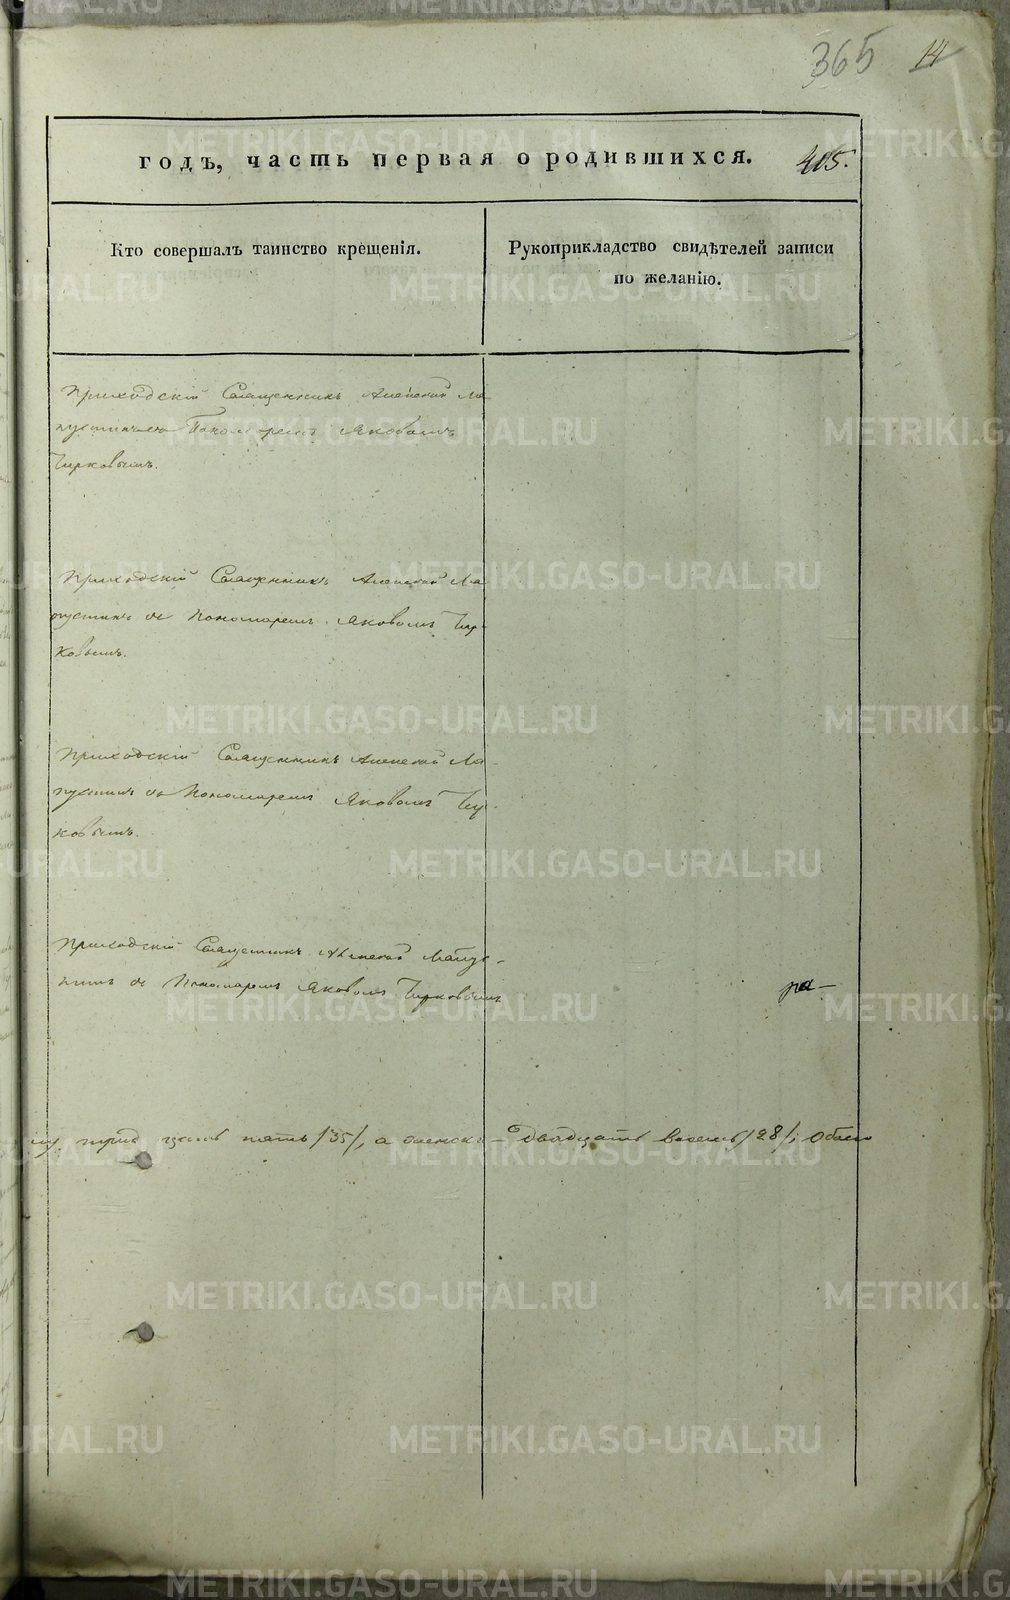 365 14
годъ, часть первая о родившихся. 405.
Кто совершалъ таинство крещенія.
Рукоприкладство свидѣтелей записи
по желанію.
Приходскій Священникъ Алексей Ла-
Пономаремъ Яковомъ
Чирковымъ.
Приходскій Священникъ Алексей Ла-
пустинъ съ Пономаремъ Яковомъ Чир-
ковымъ.
Приходскій Священникъ Алексей Ла-
пустинъ съ Пономаремъ Яковомъ Чир-
ковымъ.
Приходскій Священникъ Алексей Лапус-
тинъ съ Пономаремъ Яковомъ Чирковымъ
ра-
пять /35/, а женска- двадцать восемь /28/; обоего
METRIKI.GASO-URAL.RU